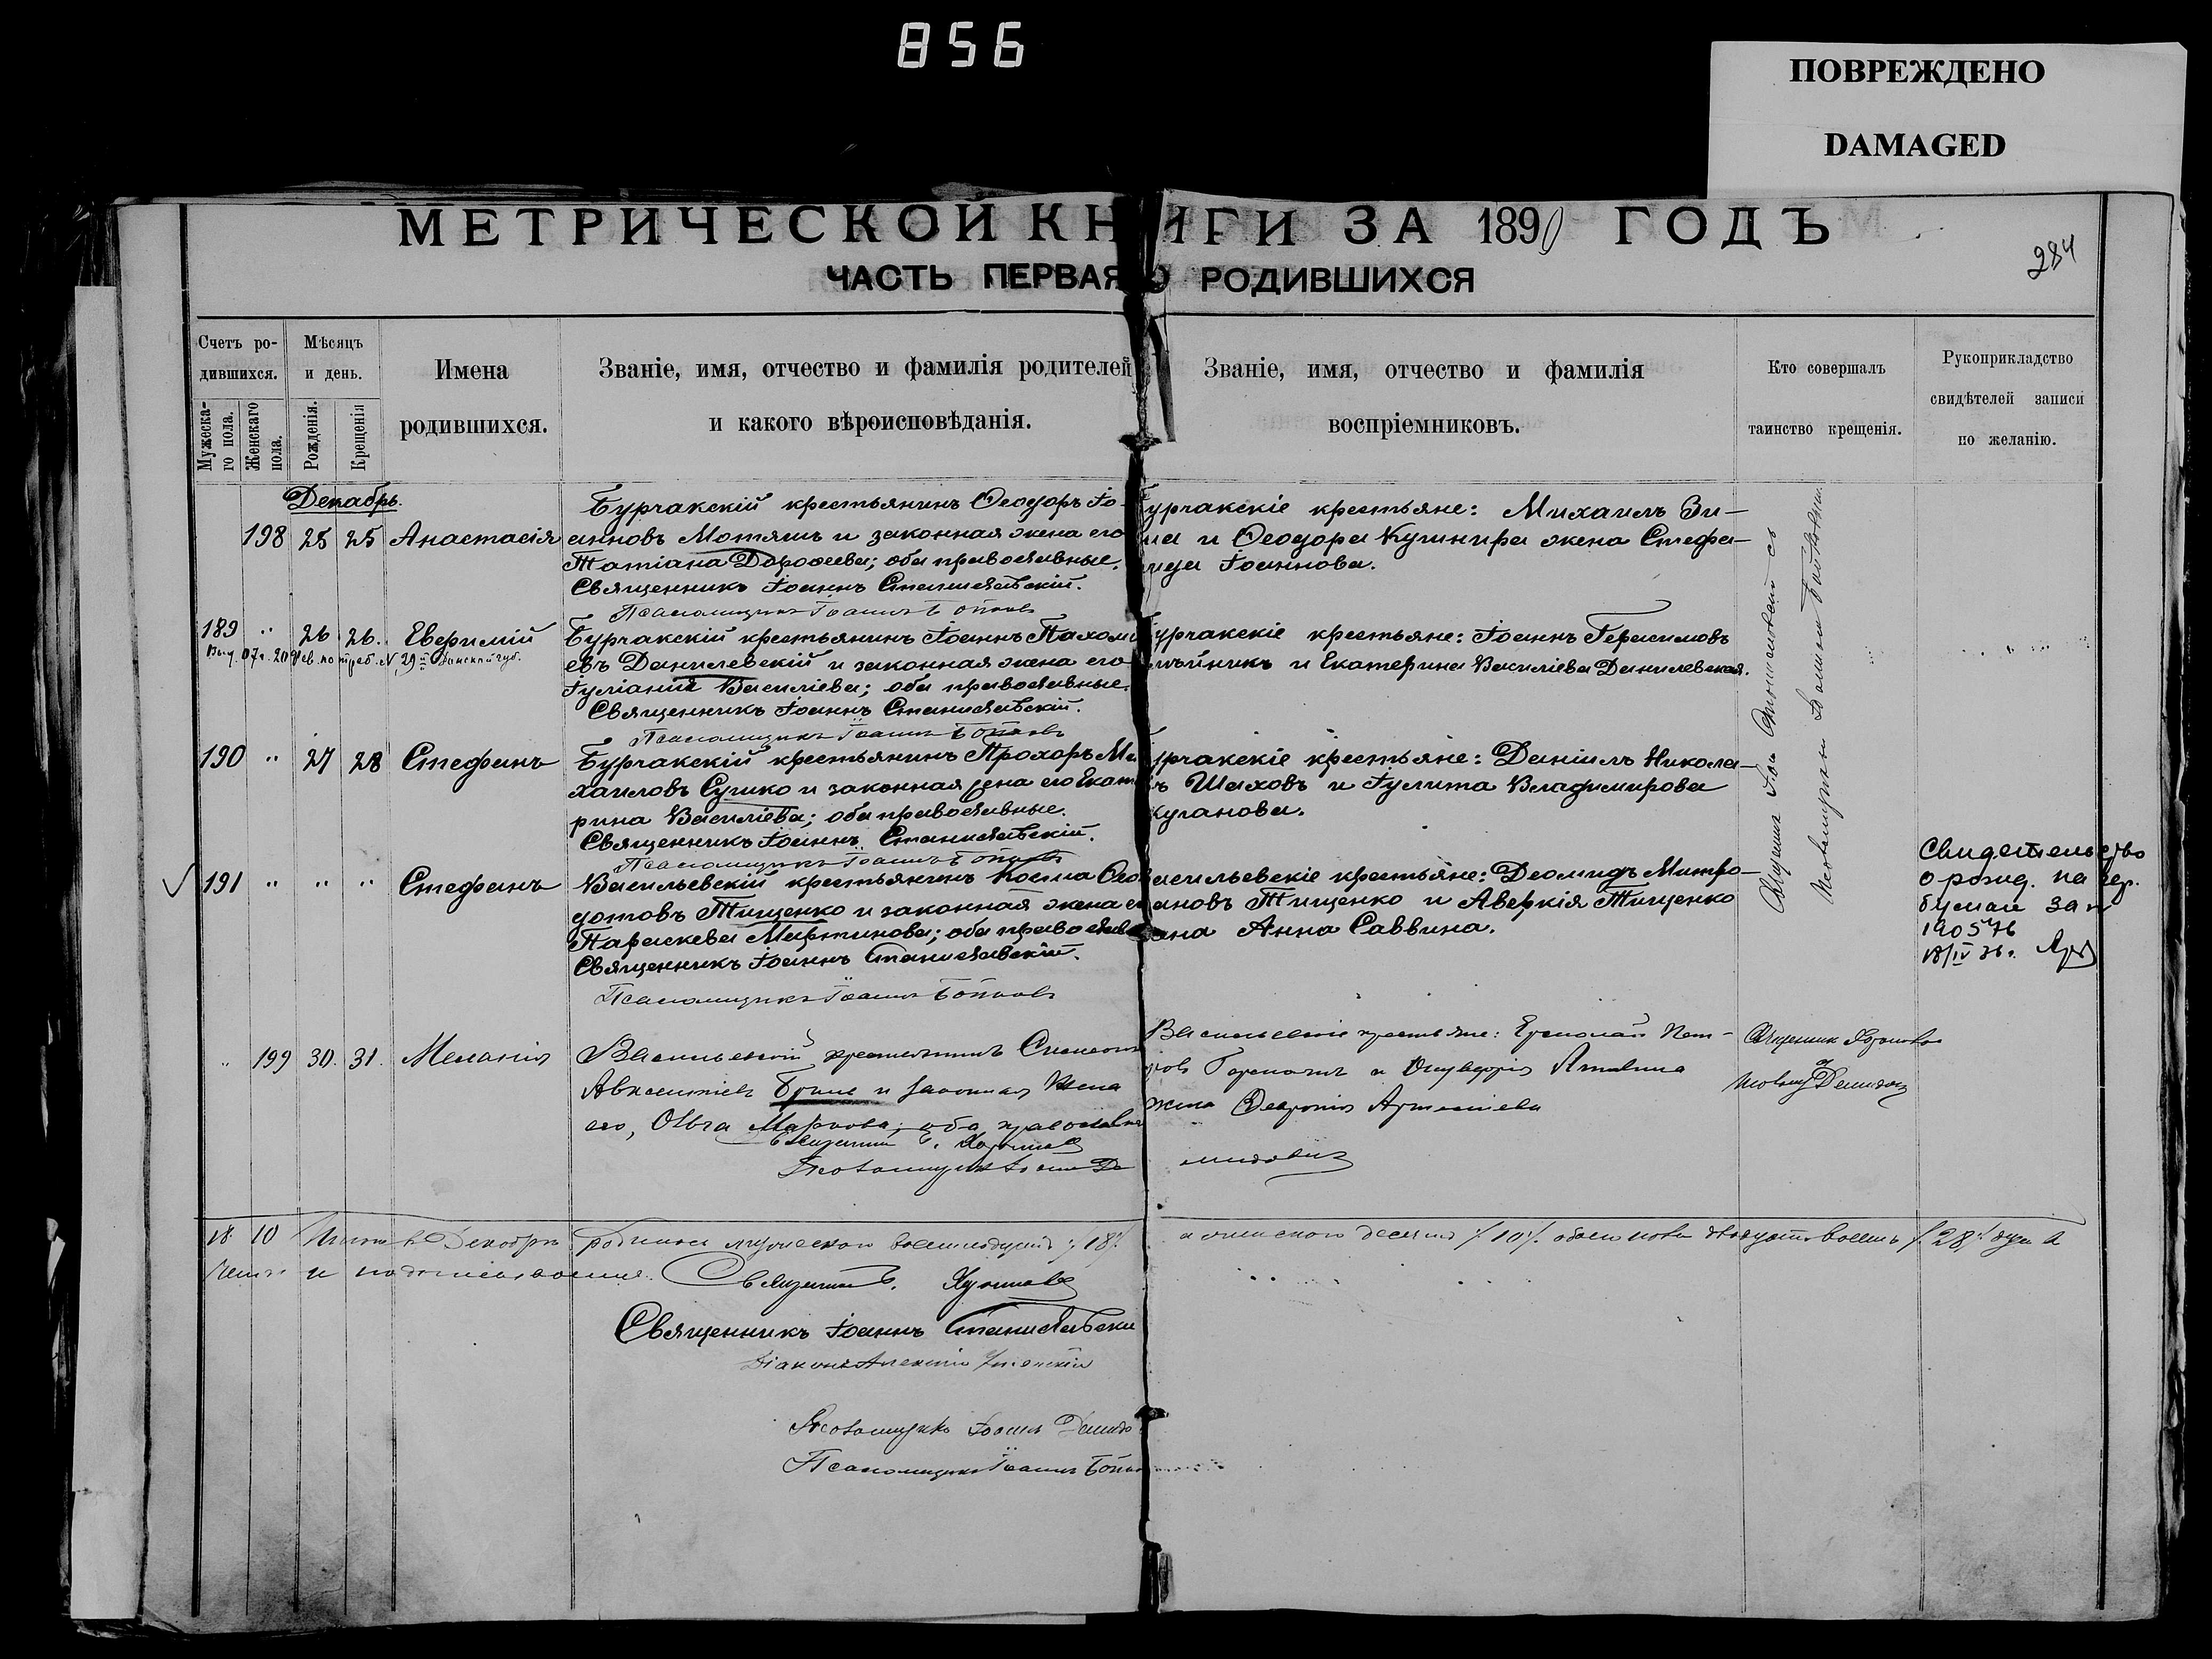 856
ПОВРЕЖДЕНО
DAMAGED
МЕТРИЧЕСКОЙ КНИГИ ЗА 1890 ГОДЪ
284
ЧАСТЬ ПЕРВАЯ О РОДИВШИХСЯ
Счетъ ро-
дившихся.
Мужеска-
го пола.
Женскаго
пола.
Мѣсяцъ
и день.
Рожденія.
Крещенія
Имена
родившихся.
Званіе, имя, отчество и фамилія родителей
и какого вѣроисповѣданія.
Званіе, имя, отчество и фамилія
воспріемниковъ.
Кто совершалъ
таинство крещенія.
Рукоприкладство
свидѣтелей записи
по желанію.
Декабрь.
198 25 25 Анастасія
Бурчакскій крестьянинъ Ѳеодоръ Іо-
анновъ Мотяшъ и законная жена его
Татіана Дороѳеева; оба православные.
Священникъ Іоаннъ Станиславскій.
Псаломщикъ Іоаннъ
Бурчакскіе крестьяне: Михаилъ Зи-
на и Ѳеодора Кушнира жена Стефа-
нида Іоаннова.
189 " 26 26. Евфимій
Бурчакскій крестьянинъ Іоаннъ Пахомі
евъ Данилевскій и законная жена его
Іуліанія Василіева; оба православные.
Священникъ Іоаннъ Станиславскій.
Псаломщикъ Іоаннъ
урчакскіе крестьяне: Іоаннъ Герасимовъ
и Екатерина Василіева Данилевская.
190 " 27 28 Стефанъ
Бурчакскій крестьянинъ Прохоръ Ми
хаиловъ Сушко и законная жена его Екате
рина Василіева; оба православные.
Священникъ Іоаннъ Станиславскій.
Псаломщикъ Іоаннъ
урчакскіе крестьяне: Даніилъ Никола-
въ Шаховъ и Іулита Владимирова
191 " " " Стефанъ
Васильевскій крестьянинъ Косма Ѳео
дотовъ Тищенко и законная жена его
Параскева Мартинова; оба православ
Священникъ Іоаннъ Станиславскій.
Псаломщикъ Іоаннъ
асильевскіе крестьяне: Деомидъ Митро-
ановъ Тищенко и Аверкія Тищенко
жена Анна Саввина.
Свидетельство
о рожд. на гер.
бумаге за №
190576
18/IV 36 г.
" 199 30. 31. Меланія
Васильевскій крестьянинъ Симеонъ
Авксентіевъ Бриль и законная жена
его, Ольга Маркова; оба православн
Священникъ
Псаломщикъ Іоаннъ Де
Васильевскіе крестьяне: Ермолай Пет-
ровъ
жена Ѳевронія Артемiева
мидовичъ
Священникъ
18 10 Итого въ Декабрѣ родилось мужескаго восемнадцать /18/
а женскаго десять /10/. обоего пола двадцать восемь /28/ душъ
Священникъ
Священникъ Іоаннъ Станиславскі
Діаконъ Алексій
Псаломщикъ Іоаннъ Демидо
Псаломщикъ Іоаннъ